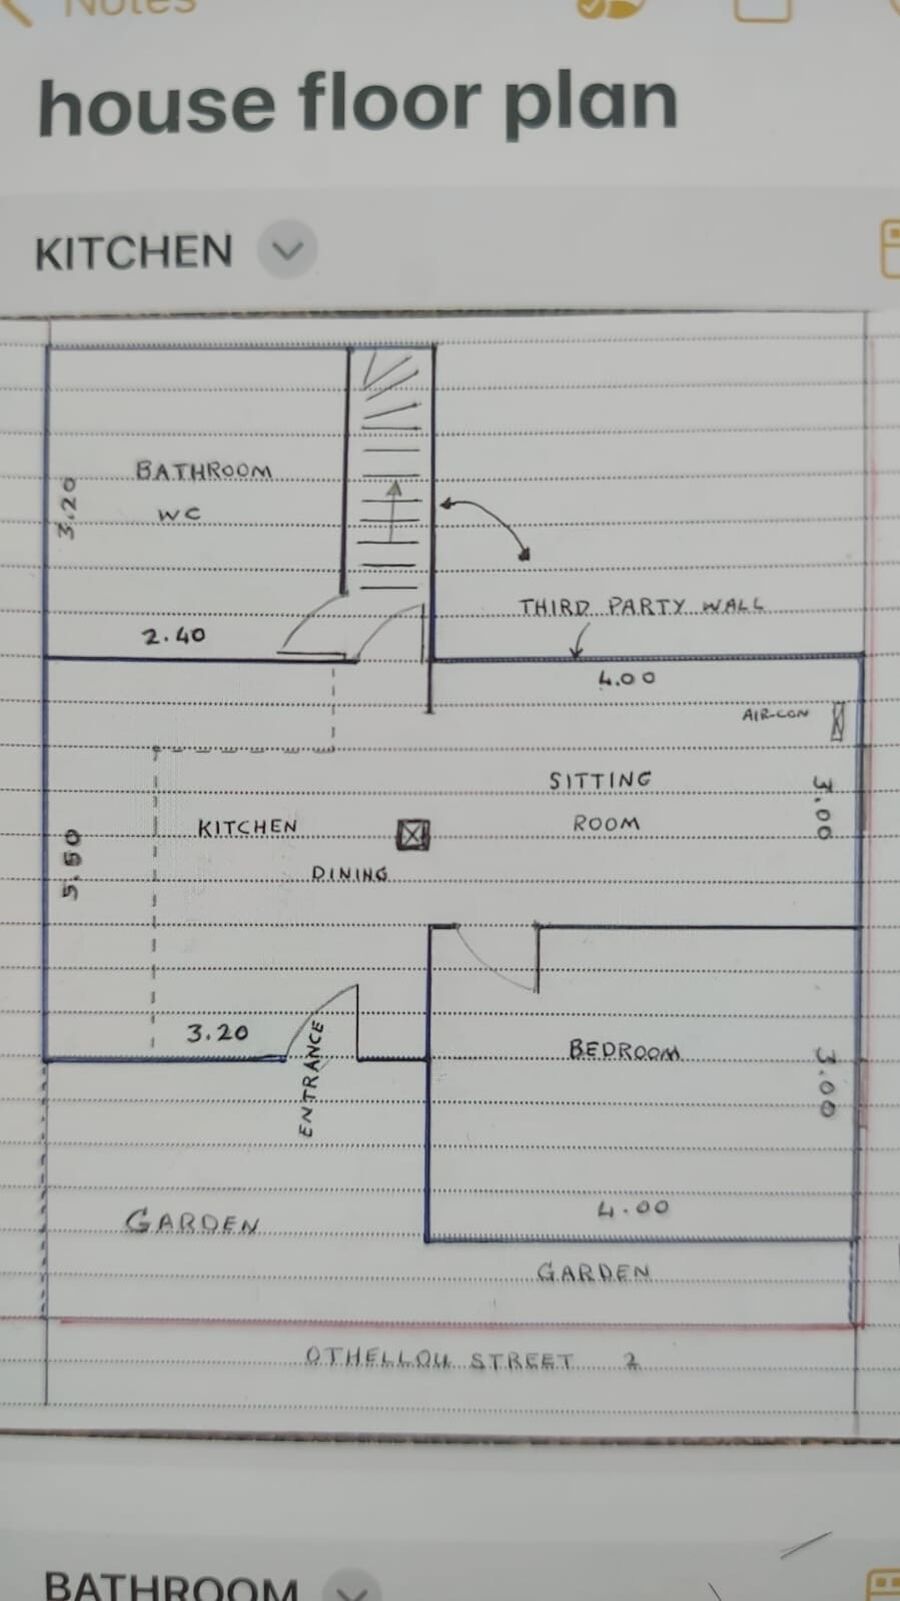 Notes
house floor plan
KITCHEN
BATHROOM
WC
3.20
2.40
THIRD PARTY WALL
4.00
AIR-CON
SITTING
ROOM
3.00
KITCHEN
DINING
5.50
3.20
ENTRANCE
BEDROOM
3.00
4.00
GARDEN
GARDEN
OTHELLOU STREET 2
BATHROOM